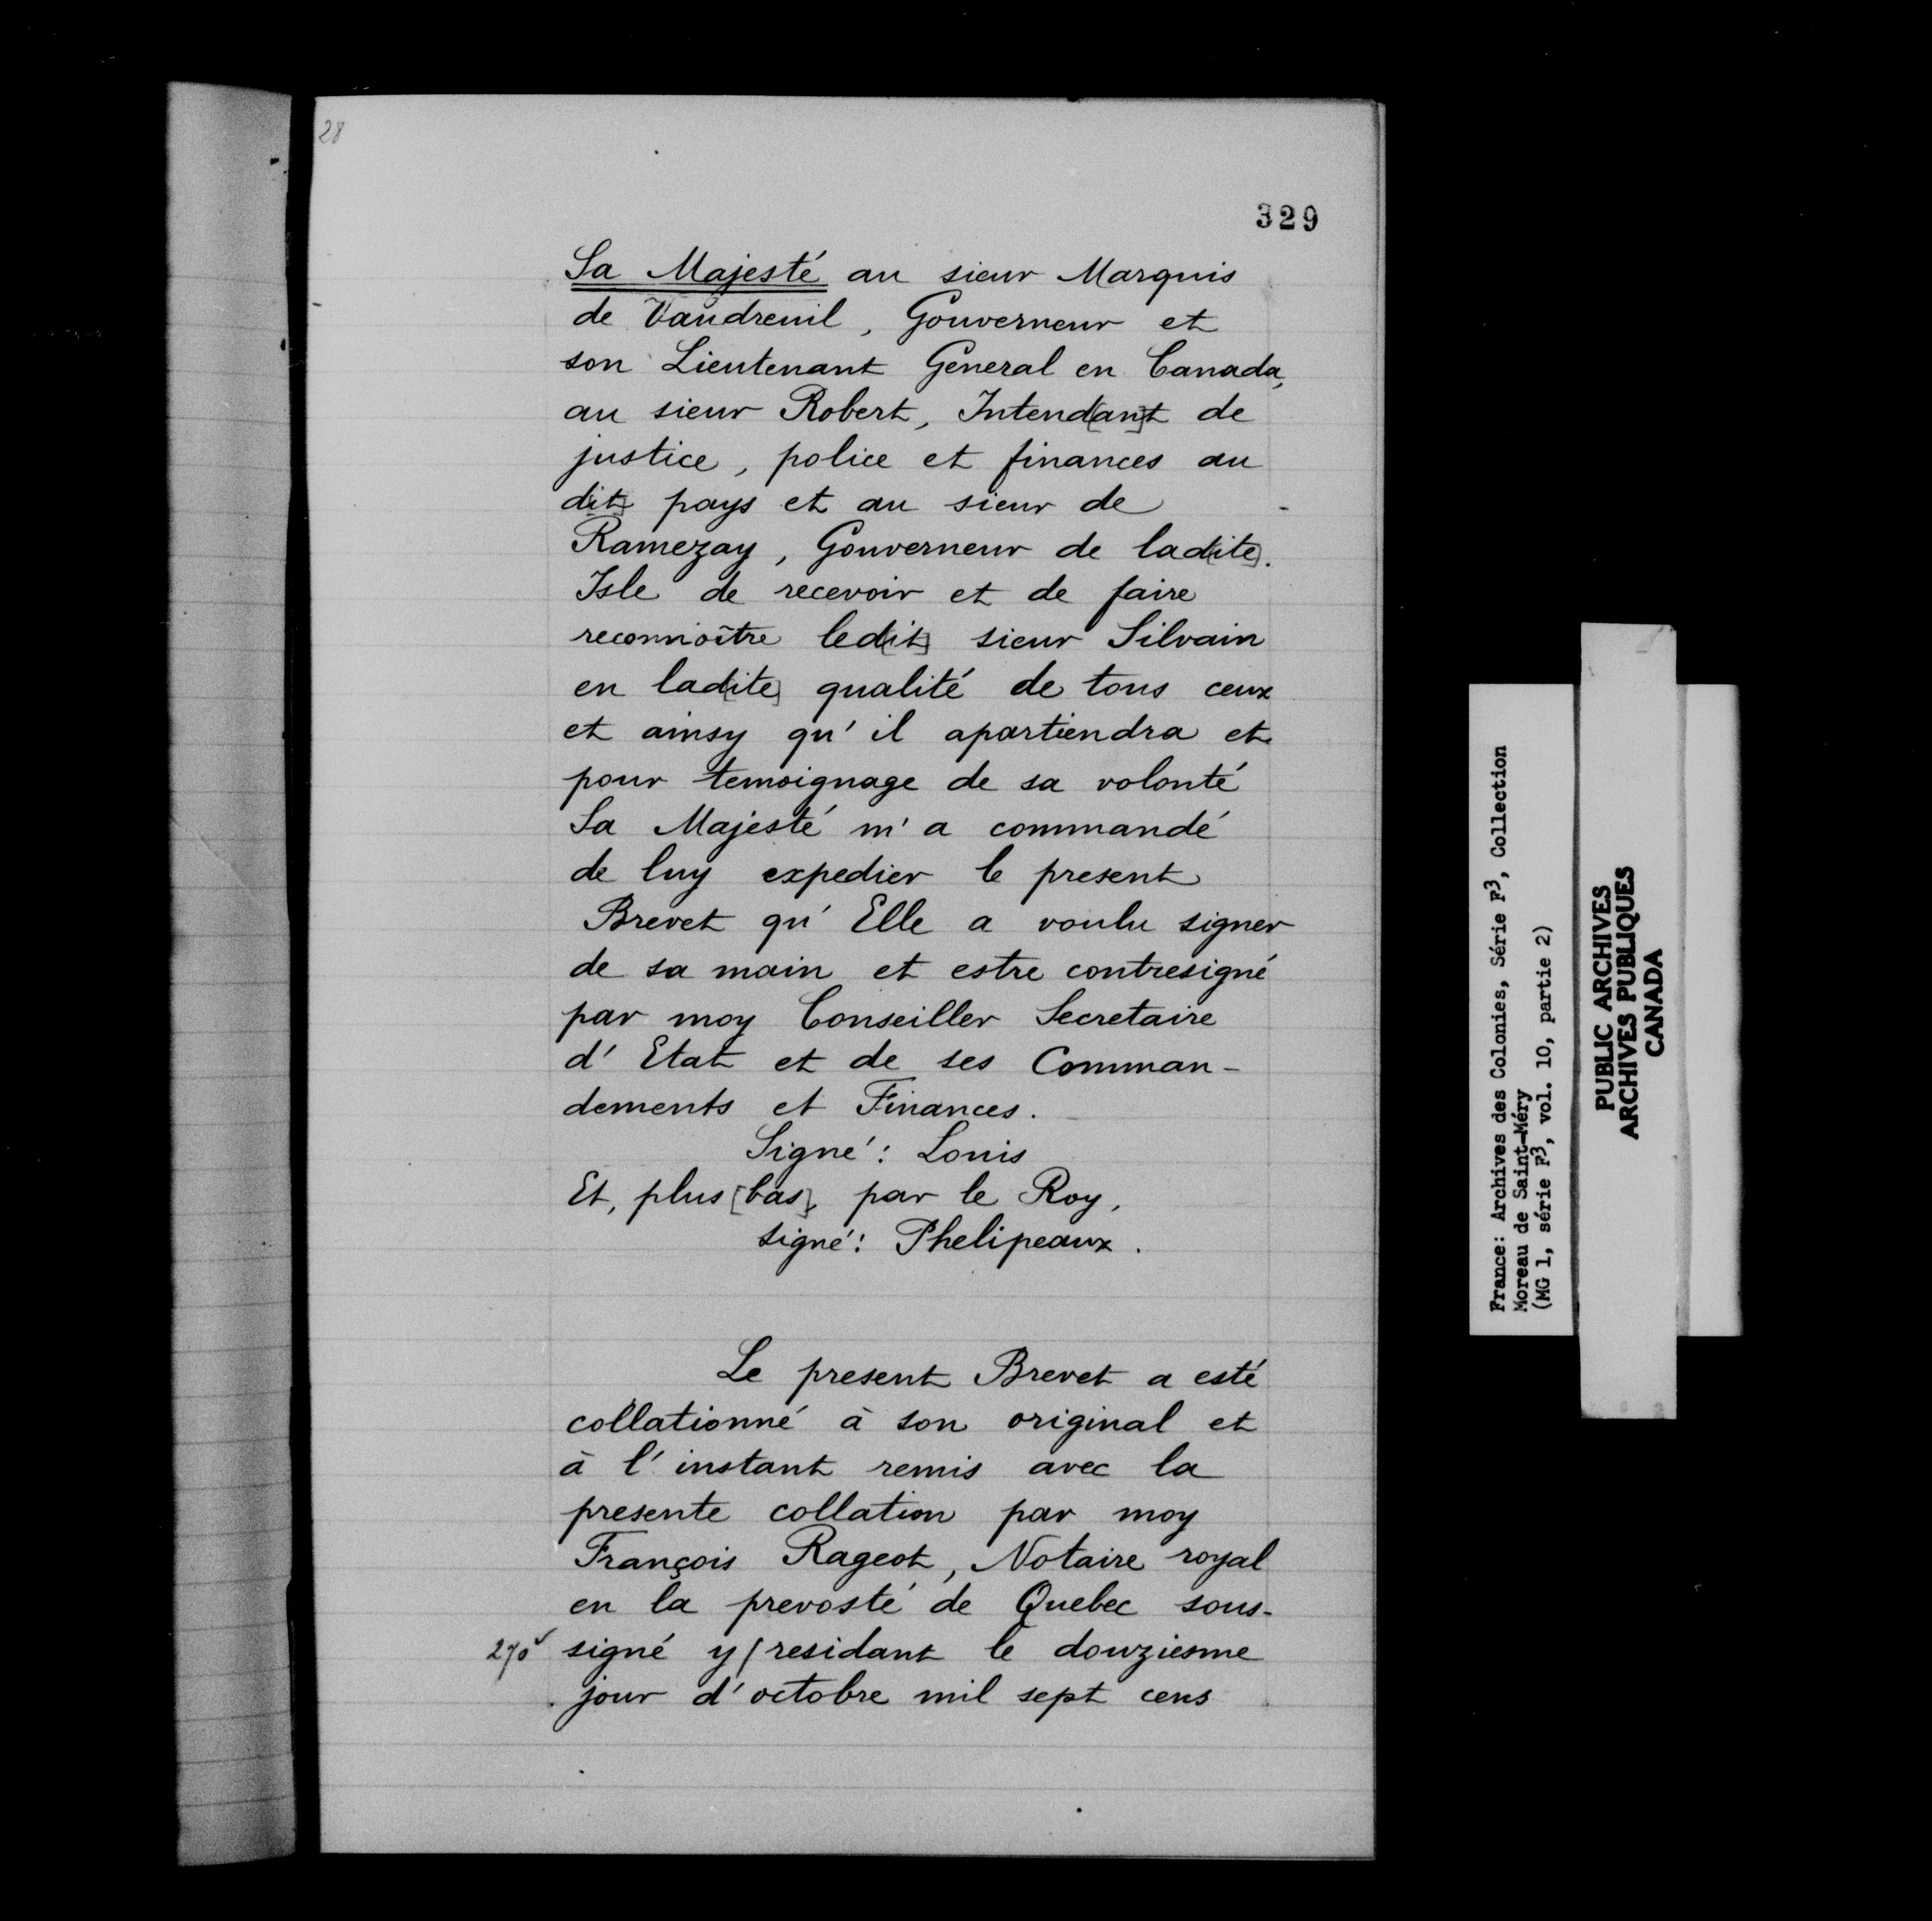 28
329
Sa Majesté au sieur Marquis
de Vaudreuil, Gouverneur et
son Lieutenant General en Canada,
au sieur Robert, Intend[an]t de
justice, police et finances au
d[it] pays et au sieur de
Ramezay, Gouverneur de lad[ite].
Isle de recevoir et de faire
reconnoître led[it] sieur Silvain
en lad[ite] qualité de tous ceux
et ainsy qu'il apartiendra et
pour temoignage de sa volonté
Sa Majesté m'a commandé
de luy expedier le present
Brevet qu'Elle a voulu signer
de sa main et estre contresigné
par moy Conseiller Secretaire
d'Etat et de ses Comman-
dements et Finances.
Signé: Louis
Et, plus [bas], par le Roy,
signé: Phelipeaux.
Le present Brevet a esté
collationné à son original et
à l'instant remis avec la
presente collation par moy
François Rageot, Notaire royal
en la prevosté de Quebec sous-
270v signé y / residant le douziesme
jour d'octobre mil sept cens
France: Archives des Colonies, Série F3, Collection
Moreau de Saint-Méry
(MG 1, série F3, vol. 10, partie 2)
PUBLIC ARCHIVES
ARCHIVES PUBLIQUES
CANADA